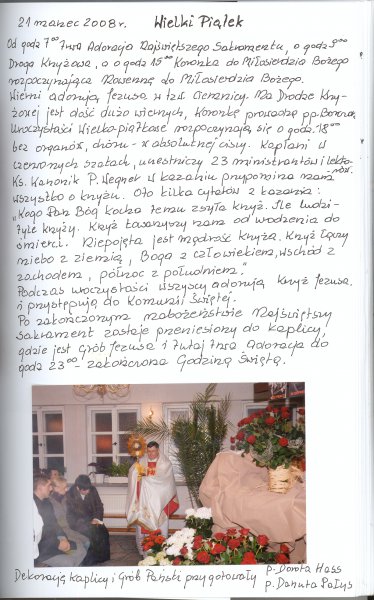 21 marzec 2008 r. Wielki Piątek
Od godz 7⁰⁰ trwa Adoracja Najświętszego Sakramentu, o godz 9⁰⁰
Droga Krzyżowa, o o godz 15⁰⁰ Koronka do Miłosierdzia Bożego
rozpoczynająca Nowennę do Miłosierdzia Bożego.
Wierni adorują Jezusa w tzw. Ciemnicy. Na Drodze Krzy-
żowej jest dość dużo wiernych, Koronkę prowadzą pp.
Uroczystości Wielkopiątkowe rozpoczynają się o godz. 18⁰⁰
bez organów, dzwon - w absolutnej ciszy. Kapłani w
czerwonych szatach, uczestniczy 23 ministrantów i lekto-
rów.
Ks. Kanonik P. Wegner w kazaniu przypomina nam
wszystko o krzyżu. Oto kilka cytatów z kazania:
"Kogo Pan Bóg kocha temu zsyła krzyż. Ile ludzi -
tyle krzyży. Krzyż towarzyszy nam od urodzenia do
śmierci. Niepojęta jest mądrość krzyża. Krzyż łączy
niebo z ziemią, Boga z człowiekiem, wschód z
zachodem, północ z południem."
Podczas uroczystości wszyscy adorują Krzyż Jezusa
i przystępują do Komunii Świętej.
Po zakończonym nabożeństwie Najświętszy
Sakrament zostaje przeniesiony do kaplicy,
gdzie jest Grób Jezusa i tutaj trwa Adoracja do
godz 23⁰⁰ - zakończona Godziną Świętą.
Dekorację kaplicy i Grób Pański przygotowały p. Dorota Hass
p. Danuta